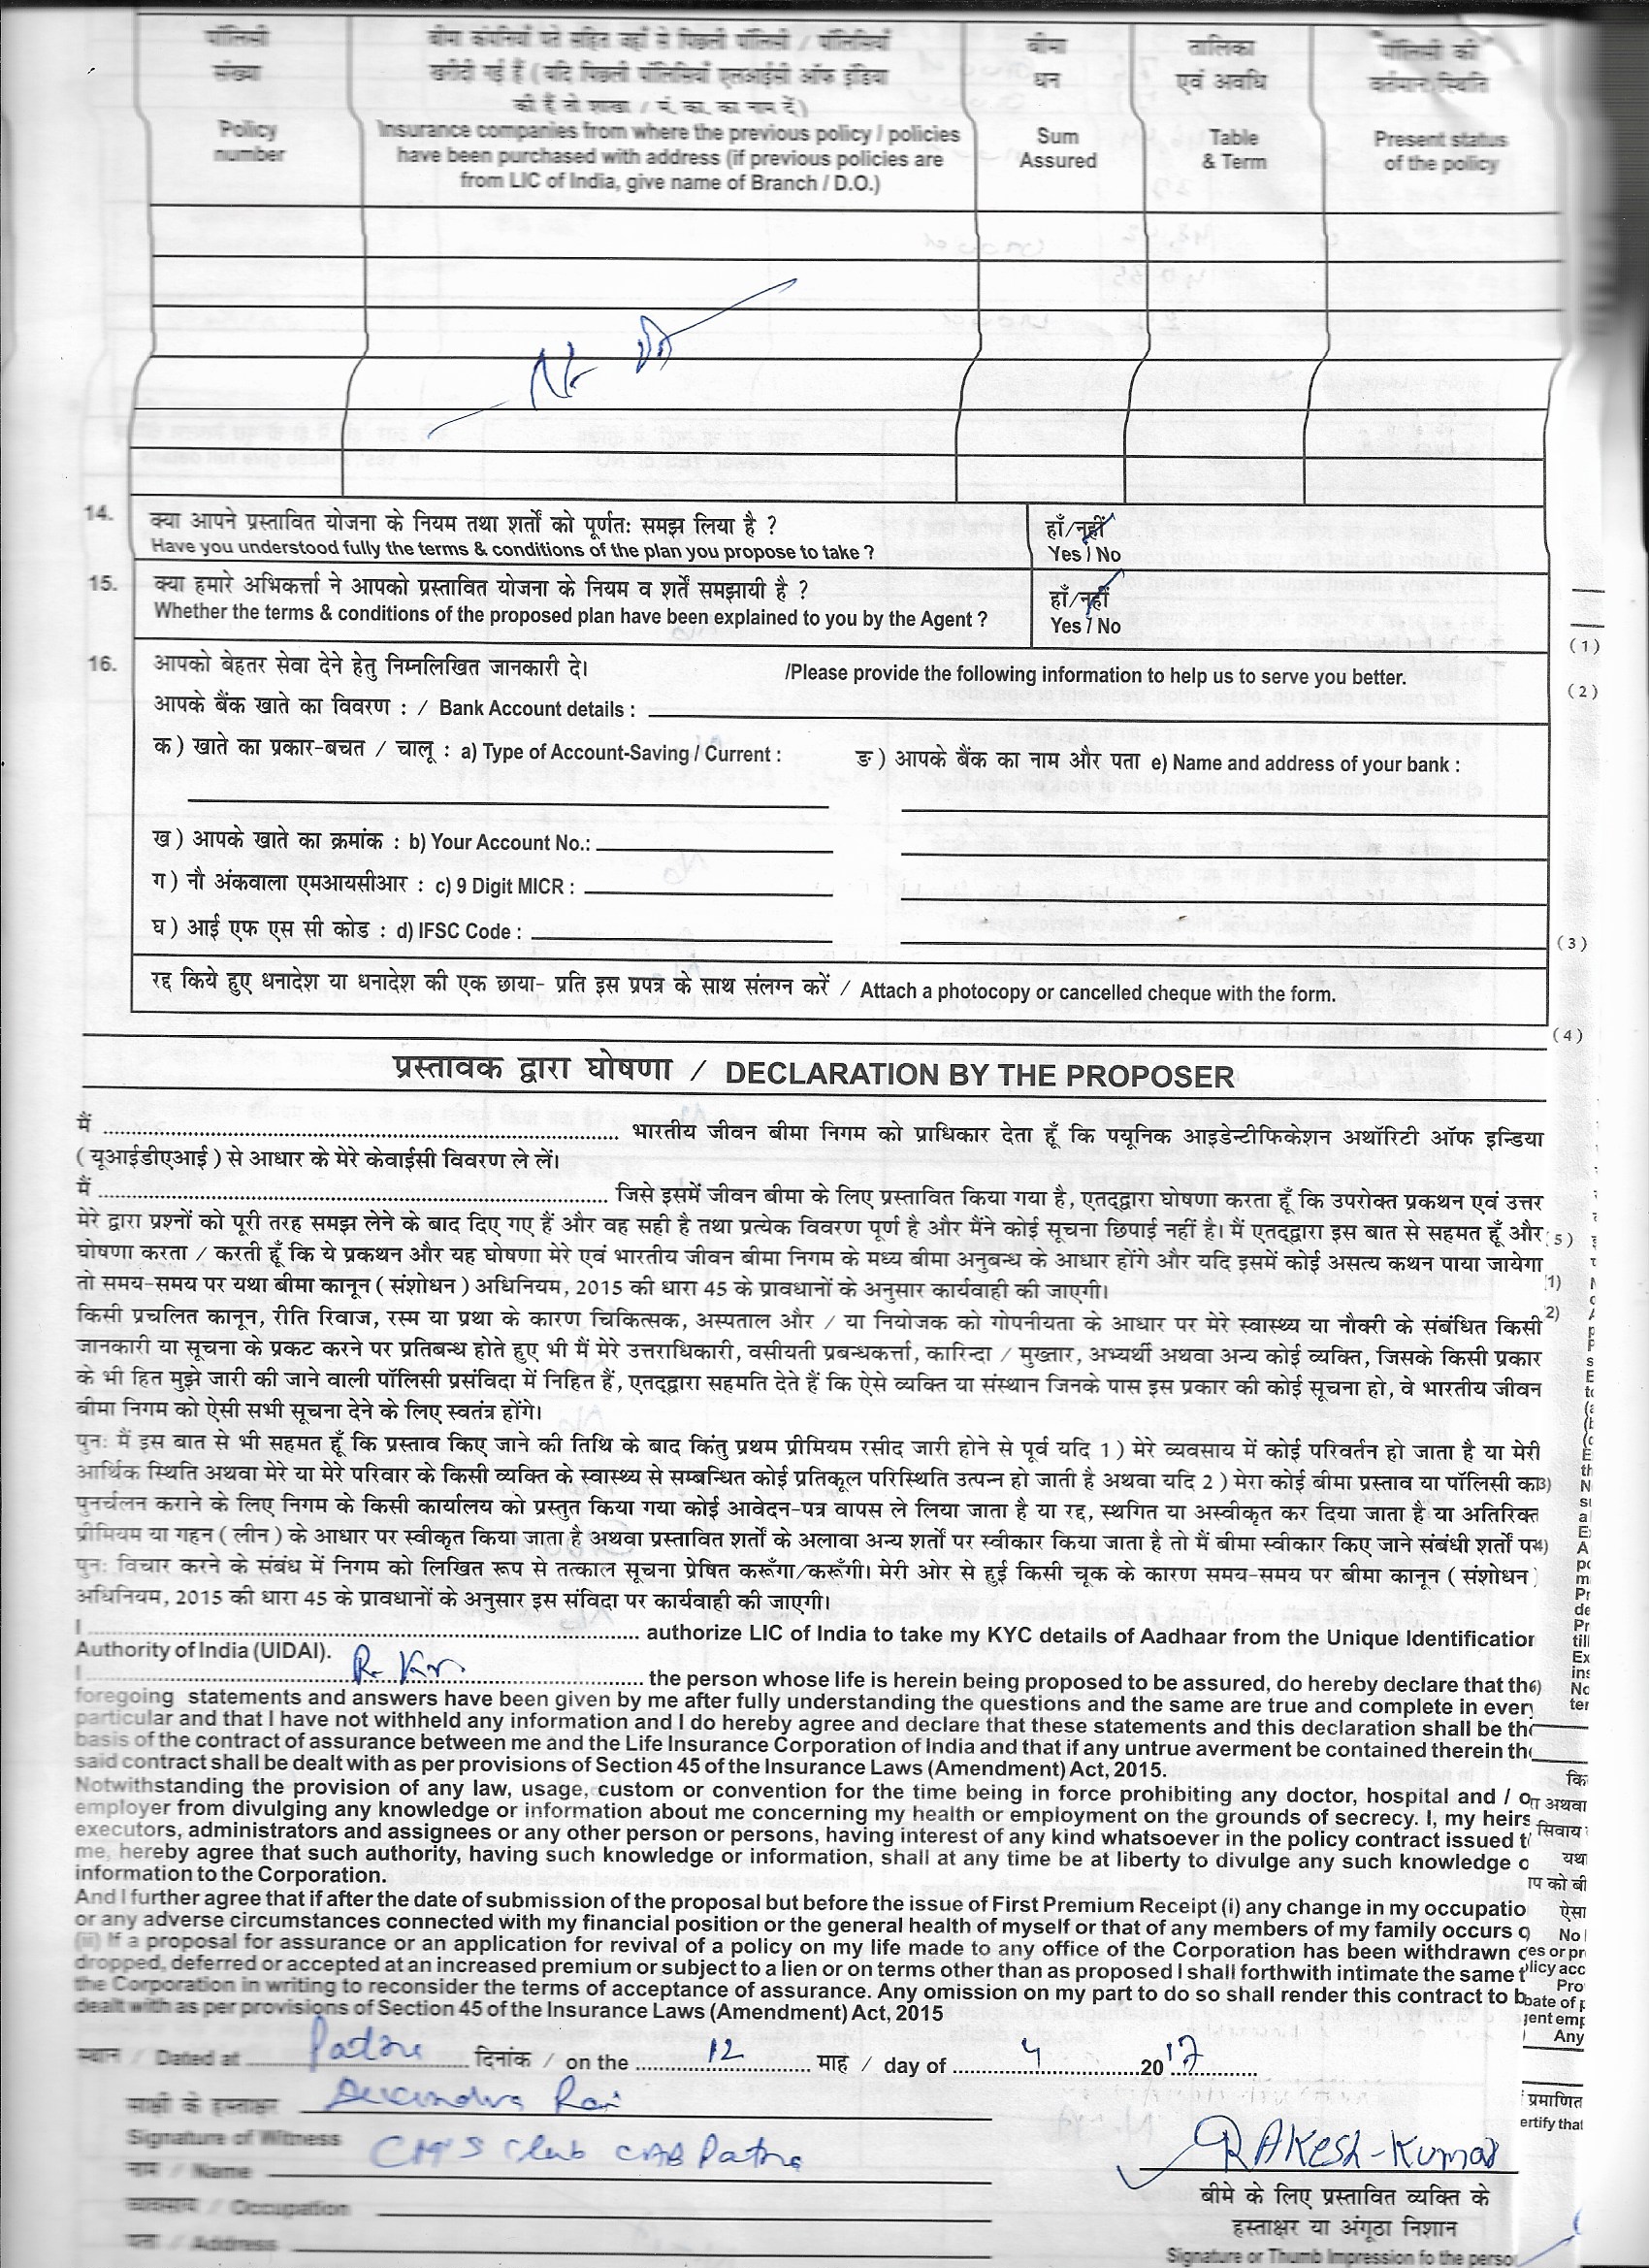 पॉलिसी
संख्या
Policy
number
बीमा कंपनियों पते सहित जहाँ से पिछली पॉलिसी / पॉलिसियाँ
खरीदी गई हैं ( यदि पिछली पॉलिसियाँ एलआईसी ऑफ इंडिया
की हैं तो शाखा / मं. का. का नाम दें )
Insurance companies from where the previous policy / policies
have been purchased with address (if previous policies are
from LIC of India, give name of Branch / D.O.)
बीमा
धन
Sum
Assured
तालिका
एवं अवधि
Table
& Term
पॉलिसी की
वर्तमान स्थिति
Present status
of the policy
14. क्या आपने प्रस्तावित योजना के नियम तथा शर्तों को पूर्णतः समझ लिया है ? हाँ/नहीं
Have you understood fully the terms & conditions of the plan you propose to take ? Yes / No
15. क्या हमारे अभिकर्त्ता ने आपको प्रस्तावित योजना के नियम व शर्तें समझायी है ? हाँ/नहीं
Whether the terms & conditions of the proposed plan have been explained to you by the Agent ? Yes / No
(1)
16. आपको बेहतर सेवा देने हेतु निम्नलिखित जानकारी दे। /Please provide the following information to help us to serve you better.
(2)
आपके बैंक खाते का विवरण : / Bank Account details :
क ) खाते का प्रकार-बचत / चालू : a) Type of Account-Saving / Current : ङ ) आपके बैंक का नाम और पता e) Name and address of your bank :
ख ) आपके खाते का क्रमांक : b) Your Account No.:
ग ) नौ अंकवाला एमआयसीआर : c) 9 Digit MICR :
घ ) आई एफ एस सी कोड : d) IFSC Code :
(3)
रद्द किये हुए धनादेश या धनादेश की एक छाया- प्रति इस प्रपत्र के साथ संलग्न करें / Attach a photocopy or cancelled cheque with the form.
(4)
प्रस्तावक द्वारा घोषणा / DECLARATION BY THE PROPOSER
मैं ........ भारतीय जीवन बीमा निगम को प्राधिकार देता हूँ कि पयूनिक आइडेन्टीफिकेशन अथॉरिटी ऑफ इन्डिया
( यूआईडीएआई ) से आधार के मेरे केवाईसी विवरण ले लें।
मैं ........ जिसे इसमें जीवन बीमा के लिए प्रस्तावित किया गया है, एतद्द्वारा घोषणा करता हूँ कि उपरोक्त प्रकथन एवं उत्तर
मेरे द्वारा प्रश्नों को पूरी तरह समझ लेने के बाद दिए गए हैं और वह सही है तथा प्रत्येक विवरण पूर्ण है और मैंने कोई सूचना छिपाई नहीं है। मैं एतद्द्वारा इस बात से सहमत हूँ और
घोषणा करता / करती हूँ कि ये प्रकथन और यह घोषणा मेरे एवं भारतीय जीवन बीमा निगम के मध्य बीमा अनुबन्ध के आधार होंगे और यदि इसमें कोई असत्य कथन पाया जायेगा
तो समय-समय पर यथा बीमा कानून ( संशोधन ) अधिनियम, 2015 की धारा 45 के प्रावधानों के अनुसार कार्यवाही की जाएगी।
किसी प्रचलित कानून, रीति रिवाज, रस्म या प्रथा के कारण चिकित्सक, अस्पताल और / या नियोजक को गोपनीयता के आधार पर मेरे स्वास्थ्य या नौकरी के संबंधित किसी
जानकारी या सूचना के प्रकट करने पर प्रतिबन्ध होते हुए भी मैं मेरे उत्तराधिकारी, वसीयती प्रबन्धकर्त्ता, कारिन्दा / मुख्तार, अभ्यर्थी अथवा अन्य कोई व्यक्ति, जिसके किसी प्रकार
के भी हित मुझे जारी की जाने वाली पॉलिसी प्रसंविदा में निहित हैं, एतद्द्वारा सहमति देते हैं कि ऐसे व्यक्ति या संस्थान जिनके पास इस प्रकार की कोई सूचना हो, वे भारतीय जीवन
बीमा निगम को ऐसी सभी सूचना देने के लिए स्वतंत्र होंगे।
पुनः मैं इस बात से भी सहमत हूँ कि प्रस्ताव किए जाने की तिथि के बाद किंतु प्रथम प्रीमियम रसीद जारी होने से पूर्व यदि 1 ) मेरे व्यवसाय में कोई परिवर्तन हो जाता है या मेरी
आर्थिक स्थिति अथवा मेरे या मेरे परिवार के किसी व्यक्ति के स्वास्थ्य से सम्बन्धित कोई प्रतिकूल परिस्थिति उत्पन्न हो जाती है अथवा यदि 2 ) मेरा कोई बीमा प्रस्ताव या पॉलिसी का
पुनर्चलन कराने के लिए निगम के किसी कार्यालय को प्रस्तुत किया गया कोई आवेदन-पत्र वापस ले लिया जाता है या रद्द, स्थगित या अस्वीकृत कर दिया जाता है या अतिरिक्त
प्रीमियम या गहन ( लीन ) के आधार पर स्वीकृत किया जाता है अथवा प्रस्तावित शर्तों के अलावा अन्य शर्तों पर स्वीकार किया जाता है तो मैं बीमा स्वीकार किए जाने संबंधी शर्तों पर
पुनः विचार करने के संबंध में निगम को लिखित रूप से तत्काल सूचना प्रेषित करूँगा/करूँगी। मेरी ओर से हुई किसी चूक के कारण समय-समय पर बीमा कानून ( संशोधन )
अधिनियम, 2015 की धारा 45 के प्रावधानों के अनुसार इस संविदा पर कार्यवाही की जाएगी।
I ........ authorize LIC of India to take my KYC details of Aadhaar from the Unique Identification
Authority of India (UIDAI).
I ... R. Kr. ... the person whose life is herein being proposed to be assured, do hereby declare that the
foregoing statements and answers have been given by me after fully understanding the questions and the same are true and complete in every
particular and that I have not withheld any information and I do hereby agree and declare that these statements and this declaration shall be the
basis of the contract of assurance between me and the Life Insurance Corporation of India and that if any untrue averment be contained therein the
said contract shall be dealt with as per provisions of Section 45 of the Insurance Laws (Amendment) Act, 2015.
Notwithstanding the provision of any law, usage, custom or convention for the time being in force prohibiting any doctor, hospital and / o
employer from divulging any knowledge or information about me concerning my health or employment on the grounds of secrecy. I, my heirs
executors, administrators and assignees or any other person or persons, having interest of any kind whatsoever in the policy contract issued t
me, hereby agree that such authority, having such knowledge or information, shall at any time be at liberty to divulge any such knowledge o
information to the Corporation.
And I further agree that if after the date of submission of the proposal but before the issue of First Premium Receipt (i) any change in my occupatio
or any adverse circumstances connected with my financial position or the general health of myself or that of any members of my family occurs o
(ii) If a proposal for assurance or an application for revival of a policy on my life made to any office of the Corporation has been withdrawn
dropped, deferred or accepted at an increased premium or subject to a lien or on terms other than as proposed I shall forthwith intimate the same t
the Corporation in writing to reconsider the terms of acceptance of assurance. Any omission on my part to do so shall render this contract to b
dealt with as per provisions of Section 45 of the Insurance Laws (Amendment) Act, 2015
स्थान / Dated at Patna दिनांक / on the 12 माह / day of 4 2017
साक्षी के हस्ताक्षर
Signature of Witness
नाम / Name
व्यवसाय / Occupation
पता / Address
RAKESH-KUMAR
बीमे के लिए प्रस्तावित व्यक्ति के
हस्ताक्षर या अंगूठा निशान
Signature or Thumb Impression fo the perso